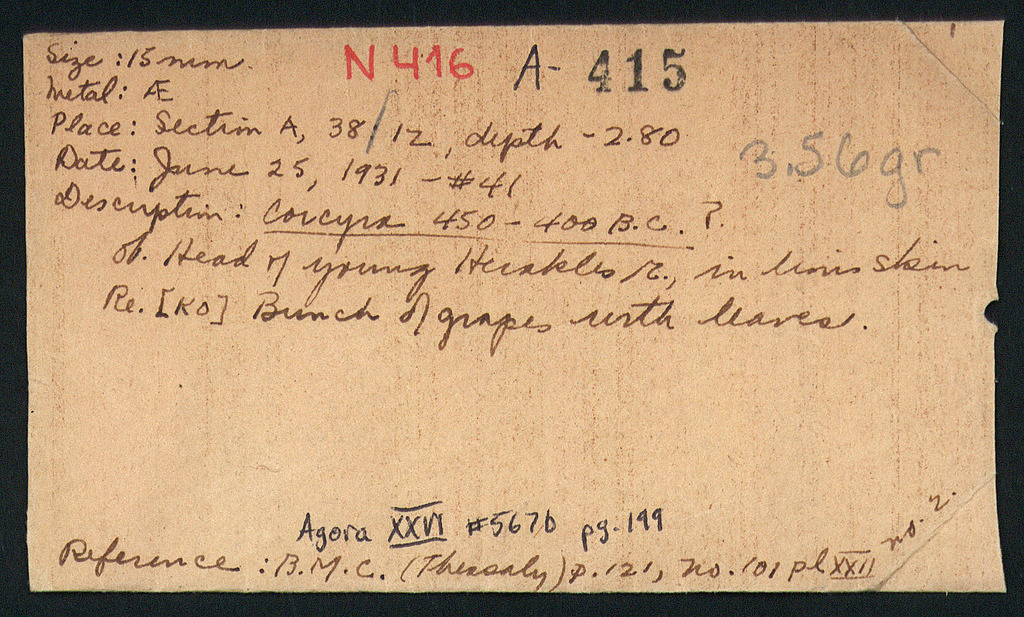 Size : 15 mm. N 416 A- 415
Metal: Æ
Place: Section A, 38/12, depth -2.80
3.56gr
Date: June 25, 1931 - #41
Description: Corcyra 450-400 B.C. ?
Ob. Head of young Herakles r., in lion's skin
Re. [KO] Bunch of grapes with leaves.
Agora XXVI #567b pg. 199
Reference : B.M.C. (Thessaly) p. 121, no. 101 pl XXII no. 2.